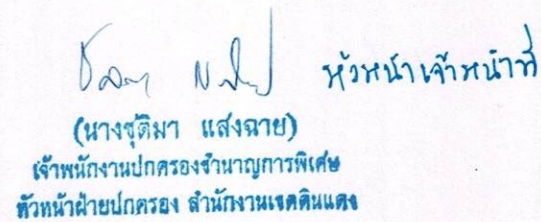 หัวหน้าเจ้าหน้าที่
(นางชุติมา แสงฉาย)
เจ้าพนักงานปกครองชำนาญการพิเศษ
หัวหน้าฝ่ายปกครอง สำนักงานเขตดินแดง